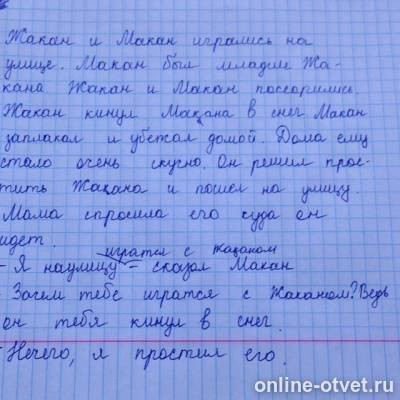 Жакан и Макан игрались на
улице. Макан был младше Жа-
кана Жакан и Макан поссорились.
Жакан кинул Макана в снег Макан
заплакал и убежал домой. Дома ему
стало очень скучно. Он решил прос-
тить Жакана и пошел на улицу.
Мама спросила его куда он
идет.
игратся с Жаканом
- Я наулицу - сказал Макан
- Зачем тебе игратся с Жаканом? Ведь
он тебя кинул в снег.
- Нечего, я простил его.
online-otvet.ru